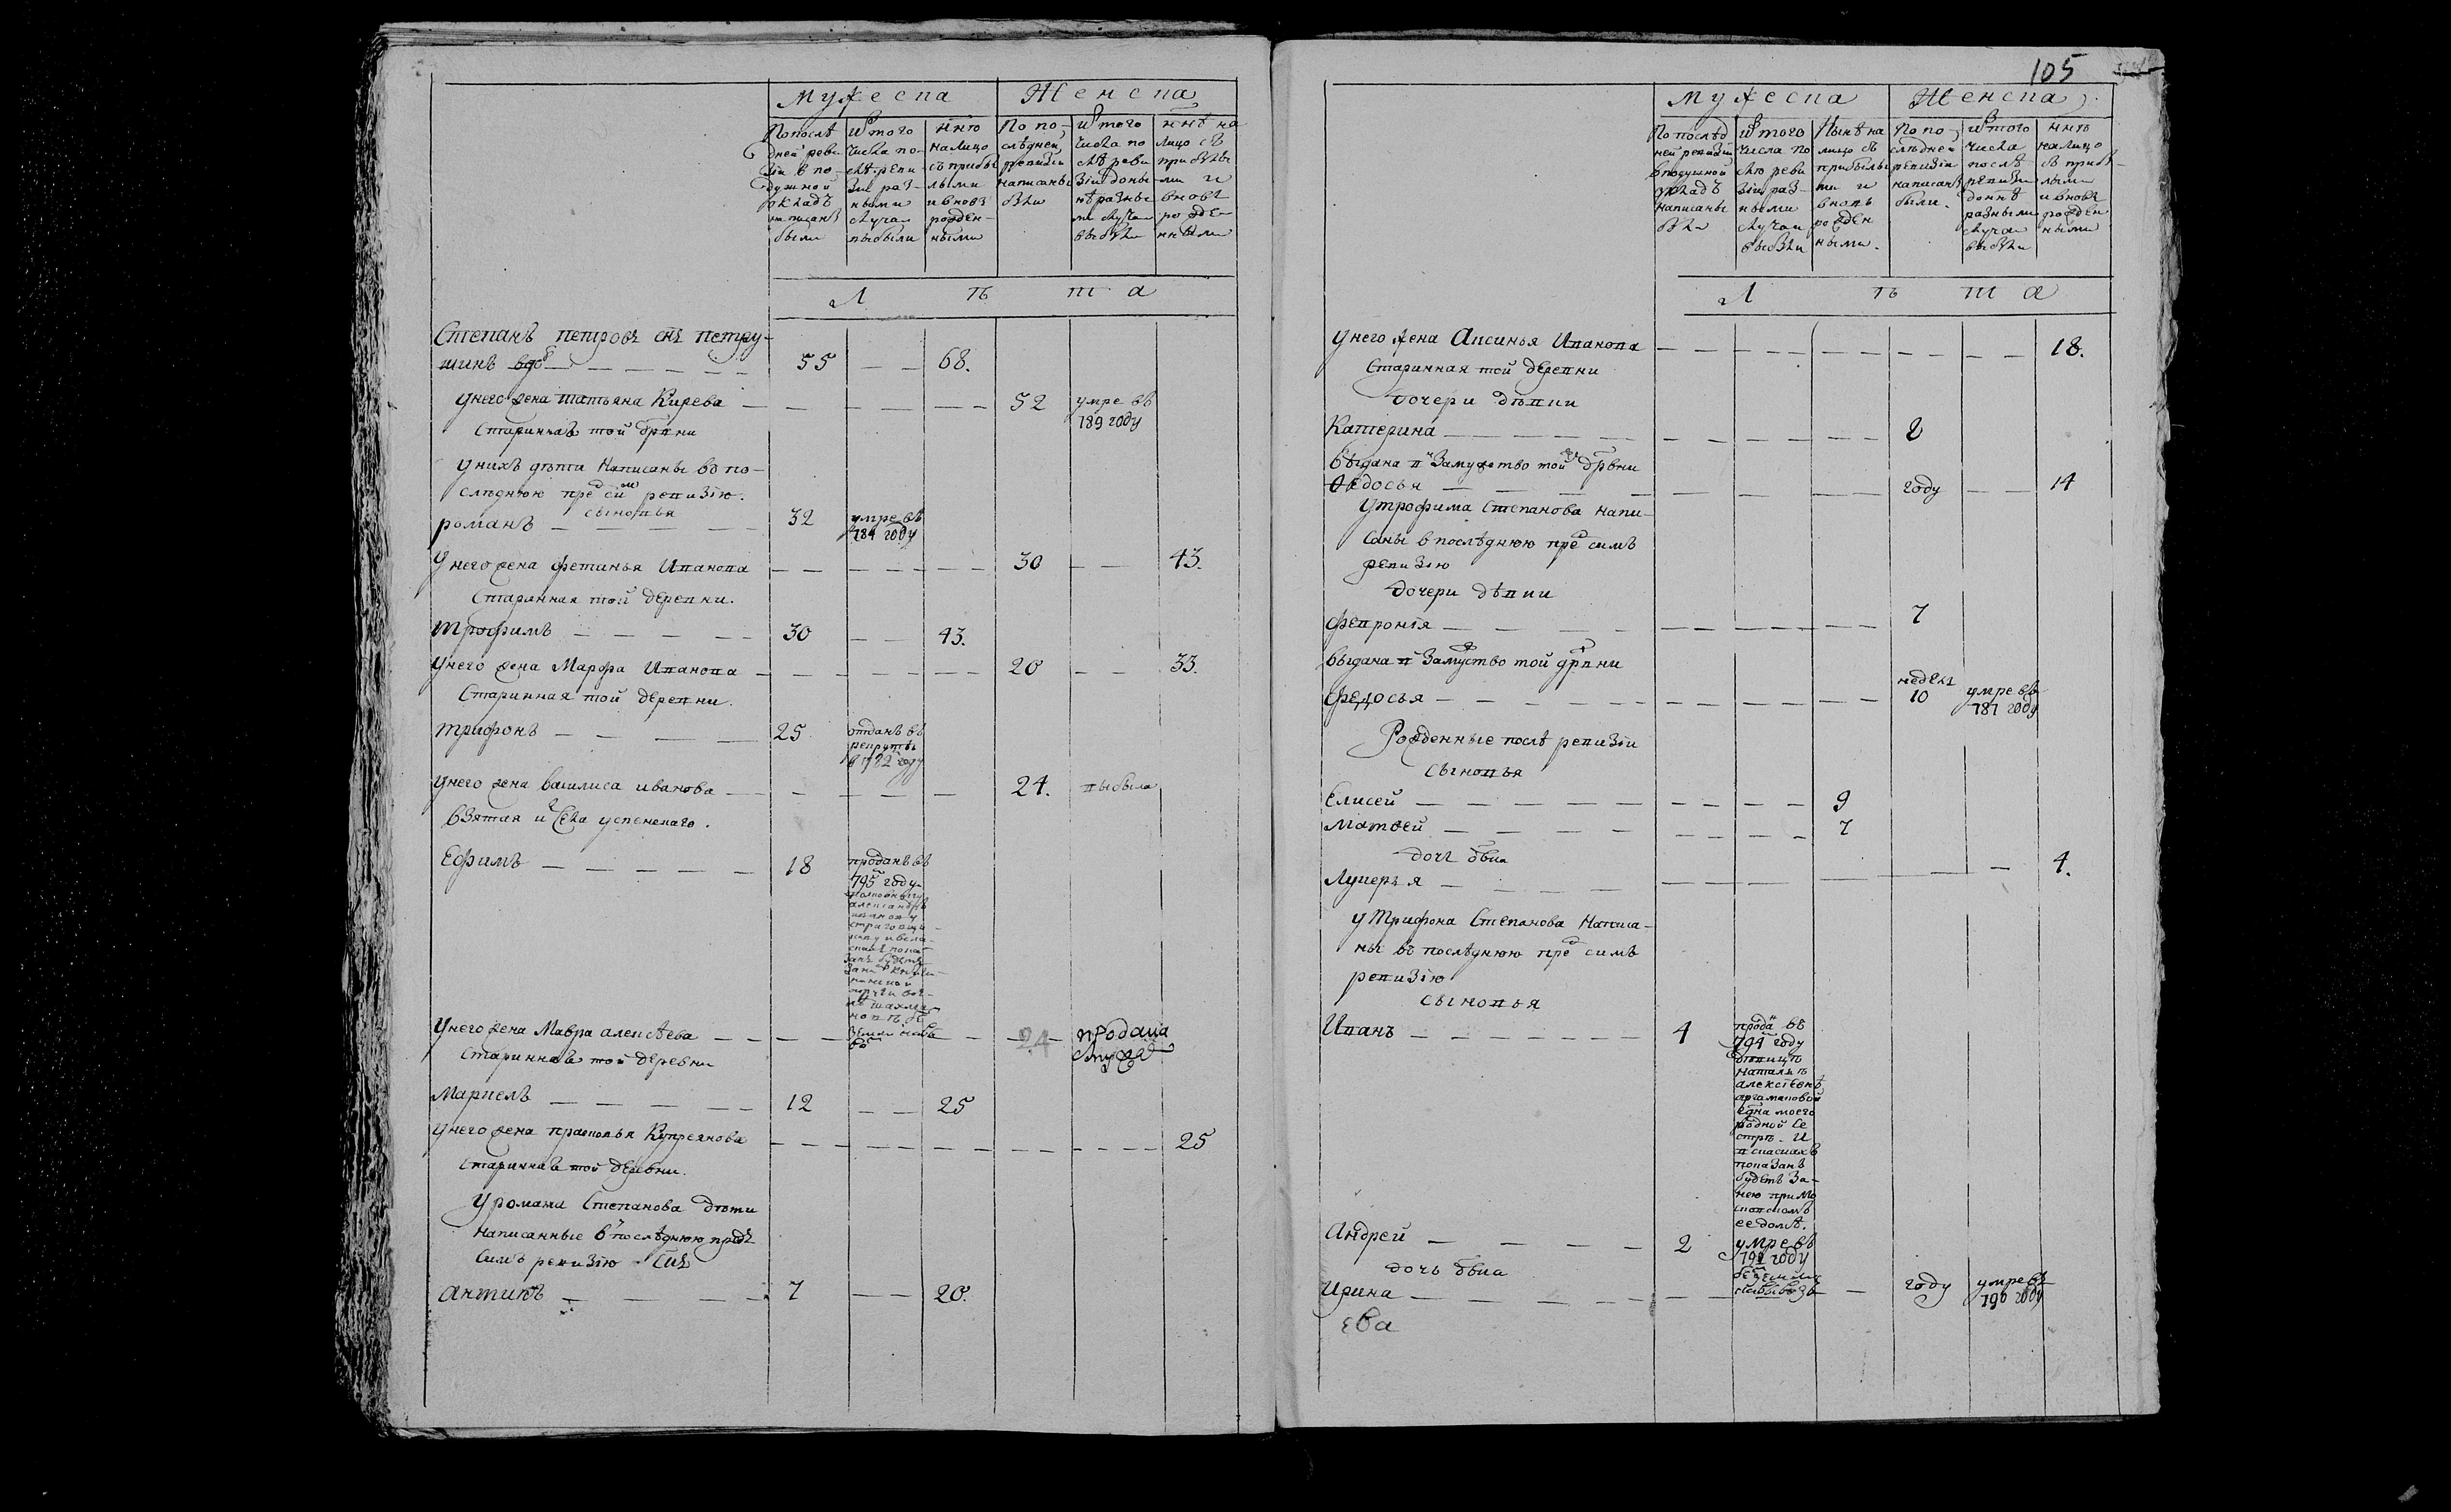 Мужеска Женска
По послѣ дней реви зіи в по душной окладъ написаны были
ис того числа по слѣ реви зіи раз ными случаи выбыли
ннѣ налицо съ прибы лыми и вновь рожден ными
По по слѣдней ревизіи написаны были
ис того числа по слѣ реви зіи доны нѣ разны ми случаи выбыли
ннѣ на лицо съ прибылы ми и вновь рожде нными
Л ѣ т а
Степанъ петровъ снъ петру-
шинъ вдо 55 — 68.
У него жена татьяна Кирева — 52 умре въ 789 году
Стариннаѧ той дрвни
У нихъ дѣти Написаны въ по-
слѣднюю предъ сим ревизію.
сыновья
романъ — 32 умре въ 784 году
У него жена фетинья Иванова — 30 — 43.
Старинная той деревни.
Трофимъ — 30 — 43.
У него жена Марфа Иванова — 20 — 33.
Старинная той деревни.
трифонъ — 25 отданъ въ рекруты в 1782 году
У него жена василиса иванова — 24. выбыла
взятая ис села успенскаго.
Ефимъ — 18 проданъ въ 795 году
У него жена Мавра алексѣева — 24 продана с мужем
Стариннаѧ той деревни
Маркелъ — 12 — 25
У него жена прасковья Купреянова — 25
Стариннаѧ той деревни.
У романа Степанова дѣти
Написанные в послѣднюю предъ
симъ ревизію снъ
антипъ — 7 — 20.
105
Мужеска Женска
По послѣд ней ревизіи в подушной окладъ написаны были
ис того числа по слѣ реви зіи раз ными случаи выбыли
Нынѣ на лицо съ прибылы ми и вновь рожден ными.
По по слѣдней ревизіи написаны были.
ис того числа послѣ ревизіи донынѣ разными случаи выбыли
ннѣ налицо съ прибы лыми и вновь рожден ными
Л ѣ т а
У него жена Аксинья Иванова — 18.
Старинная той деревни
дочери дѣвки
Катерина — 8
Выдана в замужство той дрвни
Ѳедосья — году — 14
У трофима Степанова напи-
саны в послѣднюю предъ симъ
ревизію
дочери дѣвки
Февронія — 7
Выдана в замуство той дрвни
Федосья — недель 10 умре въ 787 году
Рожденные послѣ ревизіи
сыновья
Елисей — 9
Матвей — 7
дочь двка
Лукерья — 4.
У Трифона Степанова Написа-
ны въ послѣднюю предъ симъ
ревизію
сыновья
Иванъ — 4 проданъ въ 794 году девице наталье алексеевне аргамаковой
родной се стре. И в сказкахъ показанъ будетъ за нею при московскомъ ее доме.
Андрей — 2 умре въ 791 году
дочь двка
Ирина — году умре въ 790 году
ева